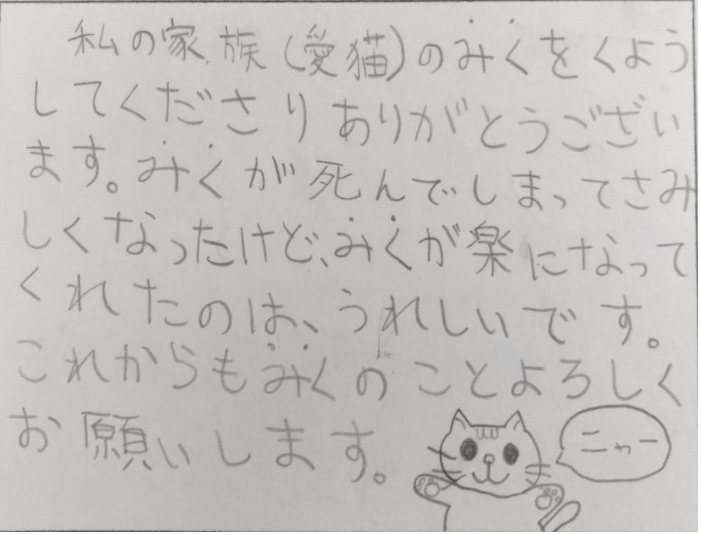 私の家族(愛猫)のみくをくよう
してくださりありがとうござい
ます。みくが死んでしまってさみ
しくなったけど、みくが楽になって
くれたのは、うれしいです。
これからもみくのことよろしく
お願いします。
ニャー